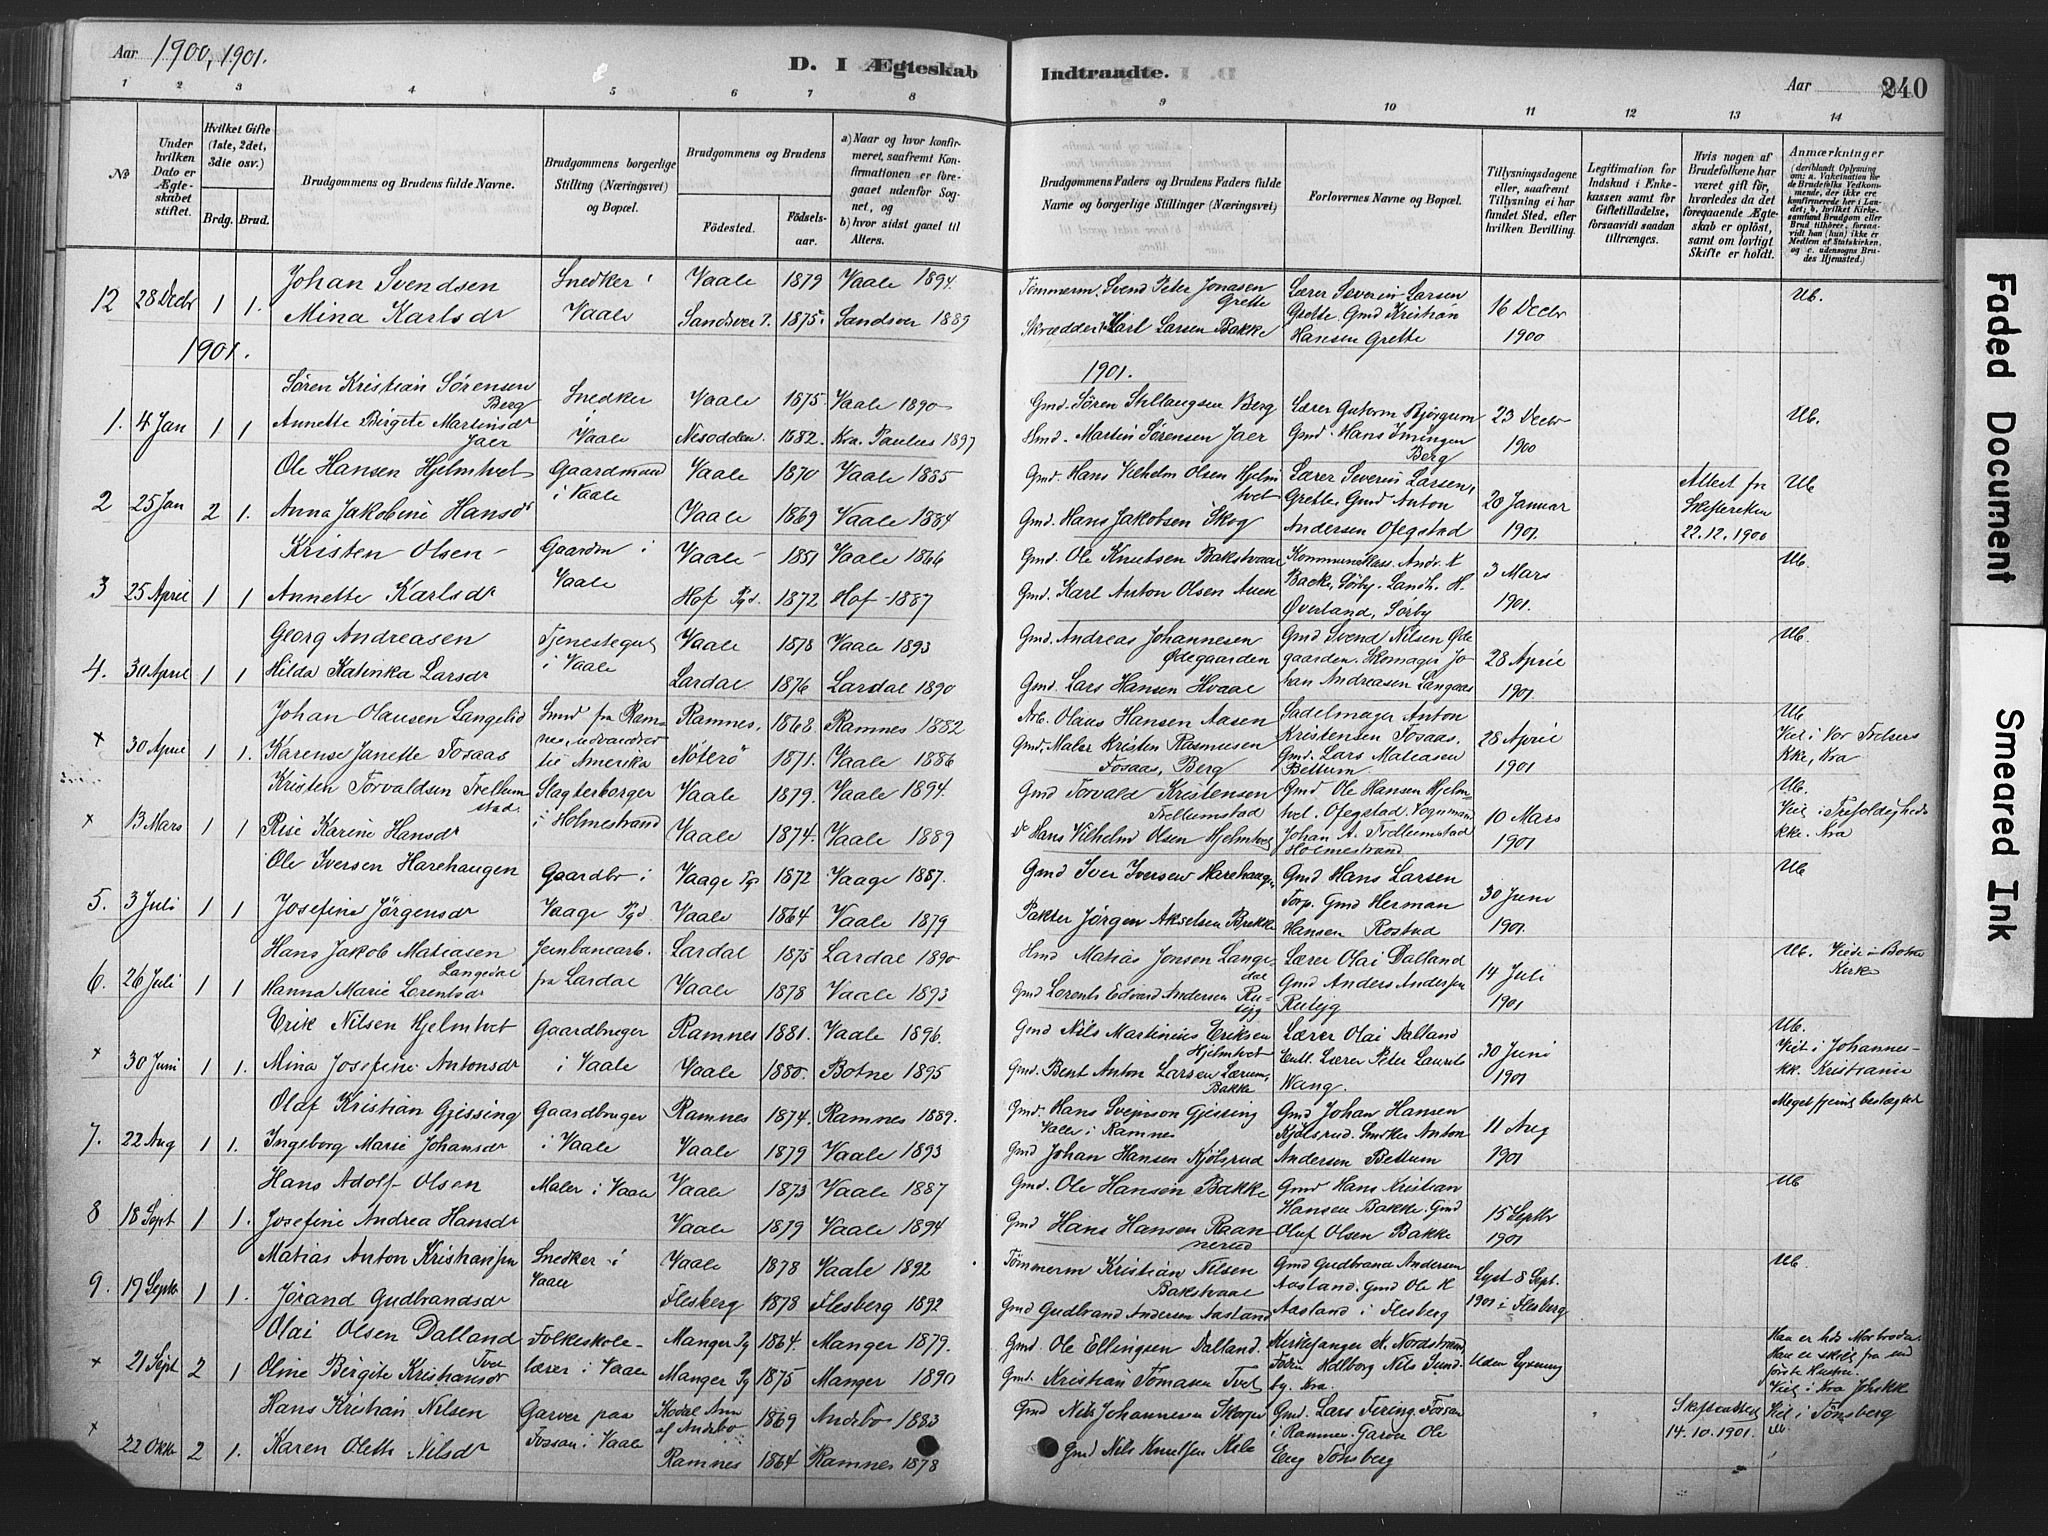 Aar 1900, 1901.
D. I Ægteskab
Indtraadte.
Aar
240
1 2 3 4 5 6 7 8 9 10 11 12 13 14
No
Under hvilken Dato er Ægteskabet stiftet.
Hvilket Gifte (1ste, 2det, 3die osv.)
Brdg. Brud.
Brudgommens og Brudens fulde Navne.
Brudgommens borgerlige Stilling (Næringsvei) og Bopæl.
Brudgommens og Brudens
Fødested.
Fødselsaar.
a) Naar og hvor konfirmeret, saafremt Konfirmationen er foregaaet udenfor Sognet, og
b) hvor sidst gaaet til Alters.
Brudgommens Faders og Brudens Faders fulde Navne og borgerlige Stillinger (Næringsvei)
Forlovernes Navne og Bopæl.
Tillysningsdagene eller, saafremt Tillysning ei har fundet Sted, efter hvilken Bevilling.
Legitimation for Indskud i Enkekassen samt for Giftetilladelse, forsaavidt saadan tiltrænges.
Hvis nogen af Brudefolkene har været gift før, hvorledes da det foregaaende Ægteskab er opløst, samt om lovligt Skifte er holdt.
Anmærkninger
12 28 Decbr 1 1. Johan Svendsen Snedker i Vaale 1879 Vaale 1894 Tømmerm. Svend Peter Jonasen Grette Lærer Severin Larsen 16 Decbr Ub.
Mina Karlsdr Vaale Sandsver 1875. Sandsver 1889 Skrædder Karl Larsen Bakke Grette. Gmd Kristian Hansen Grette 1900
1901.
1901.
Søren Kristian Sørensen Berg Snedker Vaale 1875 Vaale 1890 Gmd. Søren Berg Lærer Gutorm Bjørgum 23 Decbr Ub.
1. 4 Jan 1 1 Annette Birgite Martinsdr Jaer i Vaale Nesodden. 1882. Kra. Paulus 1897 Hmd. Martin Sørensen Jaer Gmd. Hans Berg 1900
Ole Hansen Hjelmtvet Gaardmand Vaale 1870 Vaale 1885 Gmd. Hans Vilhelm Olsen Hjelmtvet Lærer Severin Larsen, Attest fra Ub
2 25 Jan 2 1. Anna Jakobine Hansdr i Vaale Vaale 1869 Vaale 1884 Gmd. Hans Jakobsen Skog Grette. Gmd Anton Andersen Ofegstad 20 Januar 1901 Skifteretten 22.12.1900
Kristen Olsen Gaardm i Vaale 1851 Vaale 1866 Gmd. Ole Knutsen Bakstvaal 3 Mars Ub.
3 25 April 1 1 Annette Karlsdr Vaale Hof Pgd. 1872 Hof 1887 Gmd. Karl Anton Olsen Auen Backe, Sørby. Landh. H. Øverland, Sørby 1901.
Georg Andreasen Tjenestegut Vaale 1878 Vaale 1893 Gmd. Andreas Johannesen Ødegaarden Gmd Svend Nilsen Ødegaarden. Skomager Jo- Ub.
4. 30 April 1 1 Hilda Katinka Larsdr i Vaale Lardal 1876 Lardal 1890 Gmd. Lars Hansen Hvaal han Andreasen Langaas 28 April 1901.
Johan Olausen Langelid Smed fra Ram- Ramnes. 1868. Ramnes 1882 Arb. Olaus Hansen Aasen Sadelmager Anton Ub
x 30 April 1 1. Karense Janette Fosaas nes, udvandret til Amerika Nøterø 1871. Vaale 1886 Gmd. Maler Kristen Rasmusen Fosaas, Berg Kristensen Fosaas. Gmd. Lars Matiasen Bettum 28 April 1901 Viet i Vor Frelsers Kke, Kra
Kristen Torvaldsen Trellumstad. Slagterborger Vaale 1879. Vaale 1894. Gmd Torvald Kristensen Trellumstad Gmd Ole Hansen Hjelm- Ub.
x 13 Mars 1 1 Rise Karine Hansdr i Holmestrand Vaale 1874. Vaale 1889 Do Hans Vilhelm Olsen Hjelmtvet tvet. Ofegstad. Vognmand Johan A. Trellumstad Holmestrand 10 Mars 1901 Viet i Trefoldigheds kke. Kra
Ole Iversen Harehaugen Gaardbr i Vaage Pgd 1872 Vaage 1887. Gmd Iver Iversen Harehaugen Gmd Hans Larsen Ub
5. 3 Juli 1 1 Josefine Jørgensdr Vaage Pgd Vaale 1864 Vaale 1879 Pakter Jørgen Akselsen Brekke Torp. Gmd Herman Hansen Rostad 30 Juni 1901.
Hans Jakob Matiasen Langedal Jernbanearb. Lardal 1875 Lardal 1890 Hmd Matias Jonsen Langedal Lærer Olai Dalland Ub. Viet i Botne Kirke
6. 26 Juli 1 1 Hanna Marie Lorentsdr fra Lardal Vaale 1878 Vaale 1893 Gmd Lorents Edvard Andersen Gmd Anders Andersen 14 Juli 1901
Erik Nilsen Hjelmtvet Gaardbruger Ramnes 1881. Vaale 1896. Gmd Nils Martinius Eriksen Hjelmtvet Lærer Olai Dalland Ub.
x 30 Juni 1 1. Mina Josefine Antonsdr i Vaale Vaale 1880. Botne 1895 Gmd. Bent Anton Larsen Bakke Lærer Peter Laurits Wang. 30 Juni 1901 Viet i Johannes-kk. Kristiania
Olaf Kristian Gjissing Gaardbruger Ramnes 1874. Ramnes 1889. Gmd. Hans Gjissing Valle i Ramnes Gmd Johan Hansen Meget fjernt beslægted
7. 22 Aug 1 1. Ingeborg Marie Johansdr i Vaale Vaale 1879 Vaale 1893 Gmd Johan Hansen Kjølsrud Kjølsrud. Snedker Anton Andersen Bettum 11 Aug 1901
Hans Adolf Olsen Maler i Vaale Vaale 1873 Vaale 1887 Gmd. Ole Hansen Bakke Gmd Hans Kristian Ub
8 18 Sept 1 1. Josefine Andrea Hansdr Vaale 1879 Vaale 1894 Gmd Hans Hansen Raannerud Hansen Bakke. Gmd Oluf Olsen Bakke 15 Septbr 1901
Matias Anton Kristiansen Snedker i Vaale 1878 Vaale 1892 Tømmerm Kristian Nilsen Bakstvaal Gmd Gudbrand Andersen Ub.
9. 19 Septb 1 1. Jørand Gudbrandsdr Vaale Flesberg 1878 Flesberg 1892 Gmd Gudbrand Andersen Aasland Aasland. Gmd Ole K Aasland i Flesberg Lyst 8 Sept. 1901 i Flesberg
Olai Olsen Dalland Folkeskole- Manger Pg 1864. Manger 1879. Gmd. Ole Ellingsen Dalland. Kirkesanger M. Nordstrøm Han er hds Morbroder
x 21 Sept 2 1 Oline Birgite Kristiansdr Tvet lærer i Vaale Manger Pg 1875 Manger 1890 Gmd. Kristian Tomasen Tvet Nils Sundby. Kra. Uden Lysning Han er skilt fra sin første Hustru. Viet i Kra Johskk
Hans Kristian Nilsen Garver paa Kodal Ann af Andebo 1869 Andebo 1883 Gmd Nils Johannesen Gmd. Lars Fossan Skifteattest Viet i Tønsberg
x 22 Oktb 2 1. Karen Oleth Nilsdr Fossan i Vaale Ramnes 1864 Ramnes 1878 Gmd Nils Knutsen i Ramnes. Garver Ole Eng Tønsberg 14.10.1901. Ub.
Faded Document
Smeared Ink